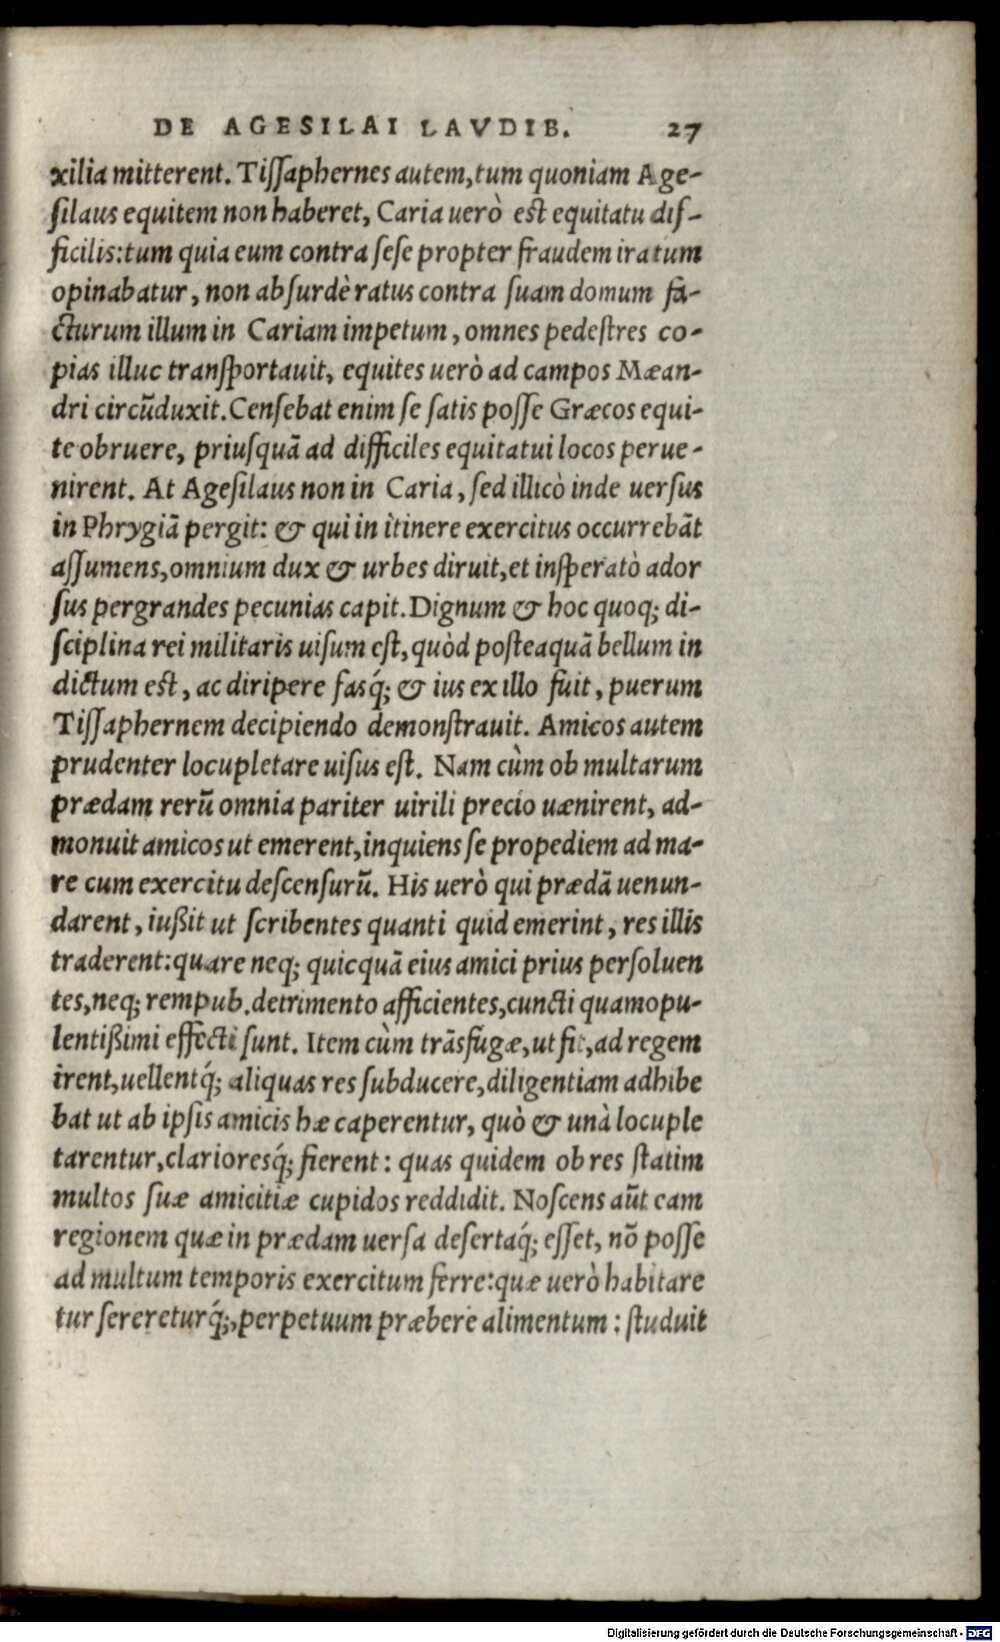 DE AGESILAI LAVDIB. 27
xilia mitterent. Tiſſaphernes autem, tum quoniam Age-
ſilaus equitem non haberet, Caria uerò est equitatu dif-
ficilis: tum quia eum contra ſeſe propter fraudem iratum
opinabatur, non abſurdè ratus contra ſuam domum fa-
cturum illum in Cariam impetum, omnes pedeſtres co-
pias illuc tranſportauit, equites uerò ad campos Mæan-
dri circūduxit. Cenſebat enim ſe ſatis poſſe Græcos equi-
te obruere, priuſquā ad difficiles equitatui locos perue-
nirent. At Ageſilaus non in Caria, ſed illicò inde uerſus
in Phrygiā pergit: & qui in itinere exercitus occurrebāt
aſſumens, omnium dux & urbes diruit, et inſperatò ador
ſus pergrandes pecunias capit. Dignum & hoc quoq; di-
ſciplina rei militaris uiſum eſt, quòd poſteaquā bellum in
dictum est, ac diripere fasq́; & ius ex illo fuit, puerum
Tiſſaphernem decipiendo demonſtrauit. Amicos autem
prudenter locupletare uiſus eſt. Nam cùm ob multarum
prædam rerū omnia pariter uirili precio uænirent, ad-
monuit amicos ut emerent, inquiens ſe propediem ad ma-
re cum exercitu deſcenſurū. His uerò qui prædā uenun-
darent, iußit ut ſcribentes quanti quid emerint, res illis
traderent: quare neq; quicquā eius amici prius perſoluen
tes, neq; rempub. detrimento afficientes, cuncti quamopu-
lentißimi effecti ſunt. Item cùm trāsfugæ, ut fit, ad regem
irent, uellentq́; aliquas res ſubducere, diligentiam adhibe
bat ut ab ipſis amicis hæ caperentur, quò & unà locuple
tarentur, clarioresq́; fierent: quas quidem ob res ſtatim
multos ſuæ amicitiæ cupidos reddidit. Noſcens aūt eam
regionem quæ in prædam uerſa deſertaq́; eſſet, nō poſſe
ad multum temporis exercitum ferre: quæ uerò habitare
tur ſerereturq́;, perpetuum præbere alimentum: ſtuduit
Digitalisierung gefördert durch die Deutsche Forschungsgemeinschaft - DFG